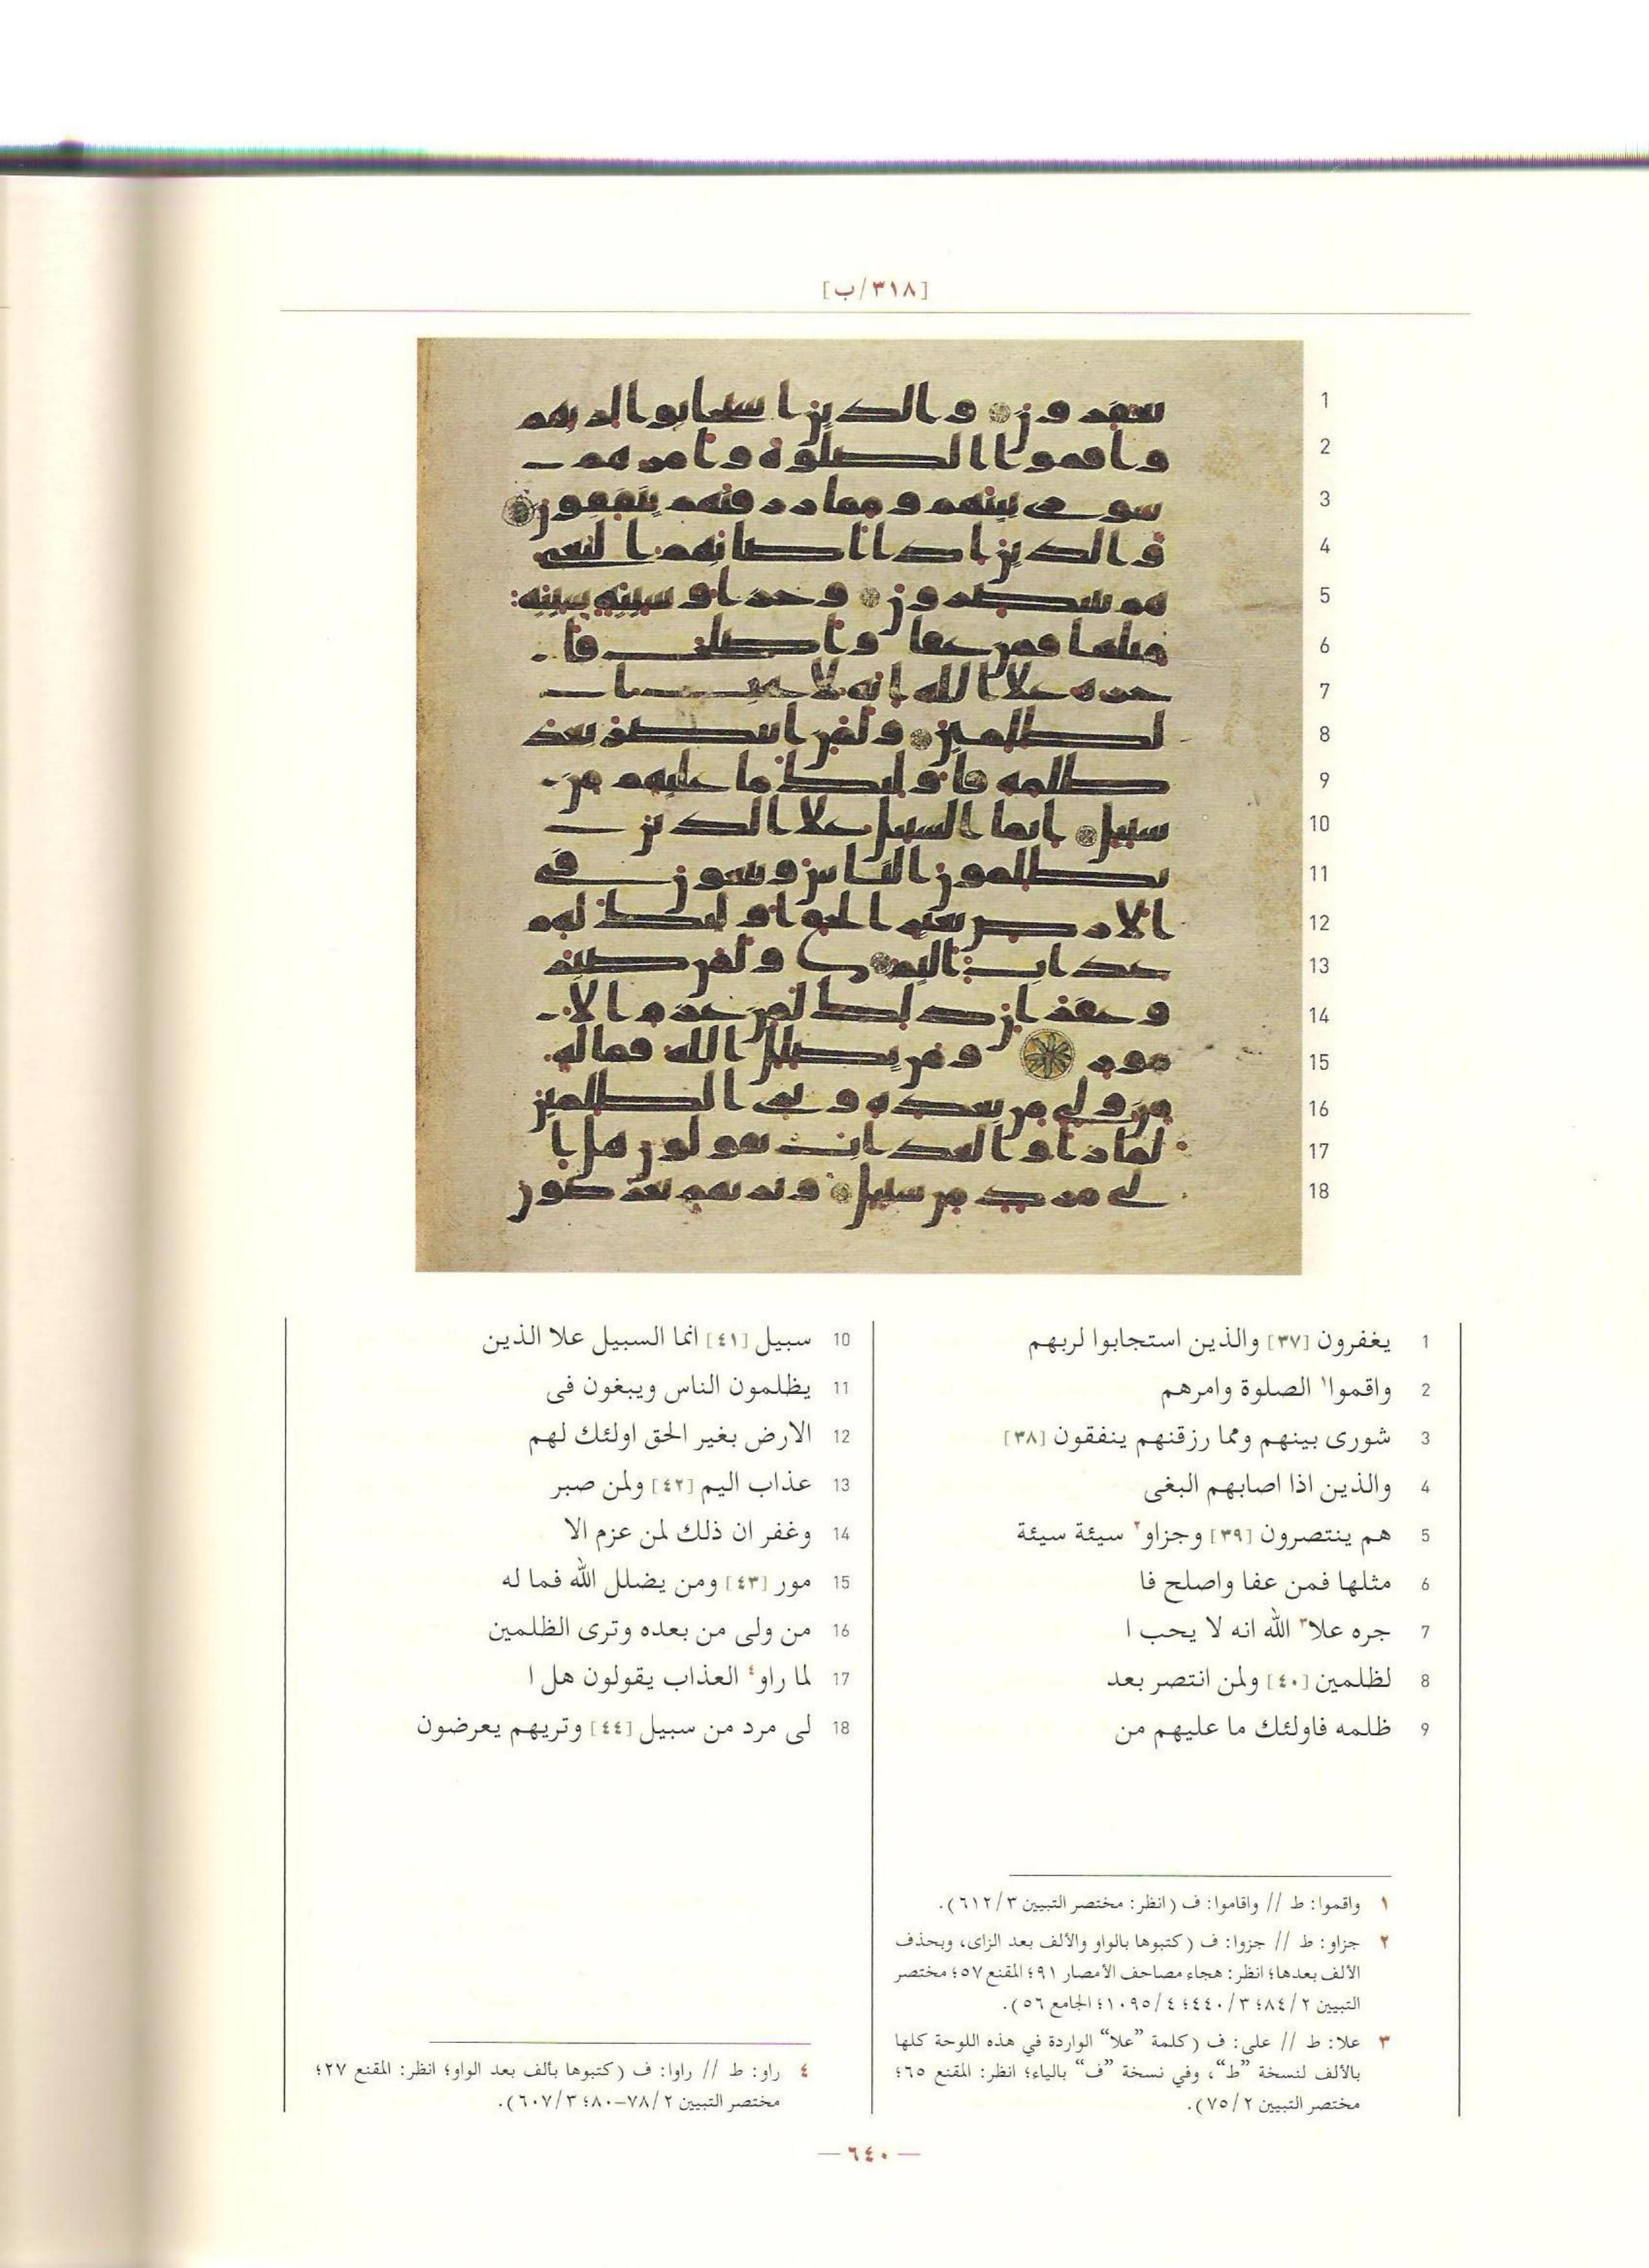 [٣١٨/ب]
1 يغفرون [٣٧] والذين استجابوا لربهم
2 واقموا١ الصلوة وامرهم
3 شورى بينهم ومما رزقنهم ينفقون [٣٨]
4 والذين اذا اصابهم البغى
5 هم ينتصرون [٣٩] وجزاو٢ سيئة سيئة
6 مثلها فمن عفا واصلح فا
7 جره علا٣ الله انه لا يحب ا
8 لظلمين [٤٠] ولمن انتصر بعد
9 ظلمه فاولئك ما عليهم من
10 سبيل [٤١] انما السبيل علا الذين
11 يظلمون الناس ويبغون فى
12 الارض بغير الحق اولئك لهم
13 عذاب اليم [٤٢] ولمن صبر
14 وغفر ان ذلك لمن عزم الا
15 مور [٤٣] ومن يضلل الله فما له
16 من ولى من بعده وترى الظلمين
17 لما راو٤ العذاب يقولون هل ا
18 لى مرد من سبيل [٤٤] وتريهم يعرضون
١ واقموا: ط // واقاموا: ف (انظر: مختصر التبيين ٣/٦١٢).
٢ جزاو: ط // جزوا: ف (كتبوها بالواو والألف بعد الزاى، وبحذف
الألف بعدها؛ انظر: هجاء مصاحف الأمصار ٩١؛ المقنع ٥٧؛ مختصر
التبيين ٢/٨٤؛ ٣/٤٤٠؛ ٤/١٠٩٥؛ الجامع ٥٦).
٣ علا: ط // على: ف (كلمة ”علا“ الواردة في هذه اللوحة كلها
بالألف لنسخة ”ط“، وفي نسخة ”ف“ بالياء؛ انظر: المقنع ٦٥؛
مختصر التبيين ٢/٧٥).
٤ راو: ط // راوا: ف (كتبوها بألف بعد الواو؛ انظر: المقنع ٢٧؛
مختصر التبيين ٢/٧٨–٨٠؛ ٣/٦٠٧).
— ٦٤٠ —